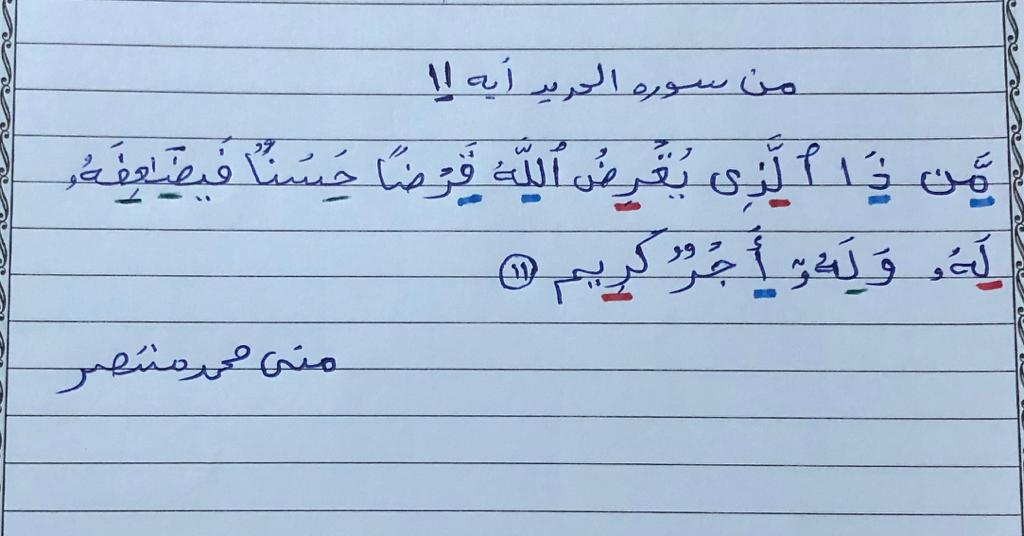 من سوره الحديد آيه ١١
مَّن ذَا ٱلَّذِى يُقْرِضُ ٱللَّهَ قَرْضًا حَسَنًا فَيُضَٰعِفَهُۥ
لَهُۥ وَلَهُۥٓ أَجْرٌ كَرِيم ١١
منى محمد منتصر